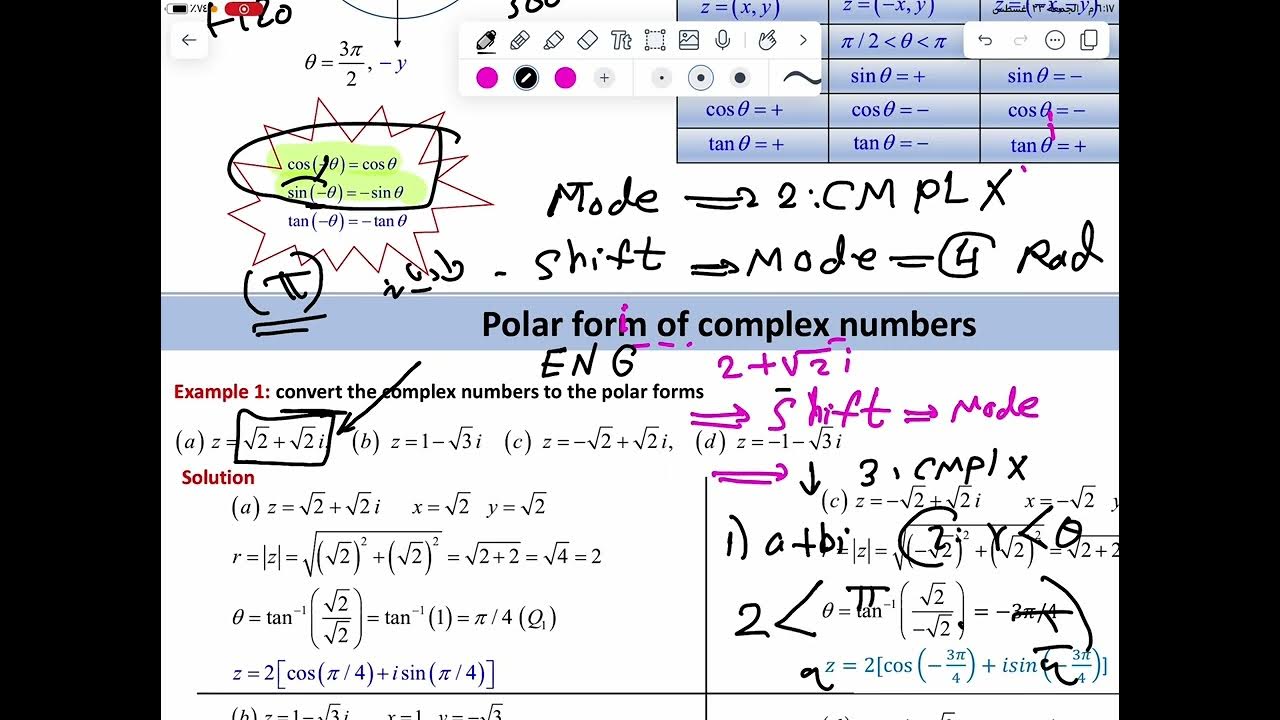 ٪٧٤
٦:١٧ م الجمعة ٢٣ أغسطس
+120
360
z = (x, y) z = (−x, y) z = (−x, −y)
Tt
π / 2 < θ < π
θ = 3π/2, −y
sin θ = + sin θ = −
cos θ = + cos θ = − cos θ = −
tan θ = + tan θ = − tan θ = +
cos(−θ) = cos θ
sin(−θ) = −sin θ
tan(−θ) = −tan θ
Mode ⟹ 2 : CMPLX
- Shift ⟹ Mode = 4 Rad
(π)
Polar form of complex numbers
i
ENG 2 + √2 i
Example 1: convert the complex numbers to the polar forms
⟹ Shift ⟹ Mode
(a) z = √2 + √2 i, (b) z = 1 − √3 i (c) z = −√2 + √2 i, (d) z = −1 − √3 i
⟹ ↓ 3 : CMPLX
Solution
(a) z = √2 + √2 i x = √2 y = √2
r = |z| = √((√2)² + (√2)²) = √(2 + 2) = √4 = 2
θ = tan⁻¹(√2/√2) = tan⁻¹(1) = π / 4 (Q₁)
z = 2[cos(π / 4) + i sin(π / 4)]
(b) z = 1 − √3 i x = 1 y = −√3
(c) z = −√2 + √2 i x = −√2 y
1) a+bi 2: r<θ
r = |z| = √((−√2)² + (√2)²) = √(2 + 2
θ = tan⁻¹(√2/−√2) = −3π/4
2 < π/4
z = 2[cos (−3π/4) + isin (−3π/4)]